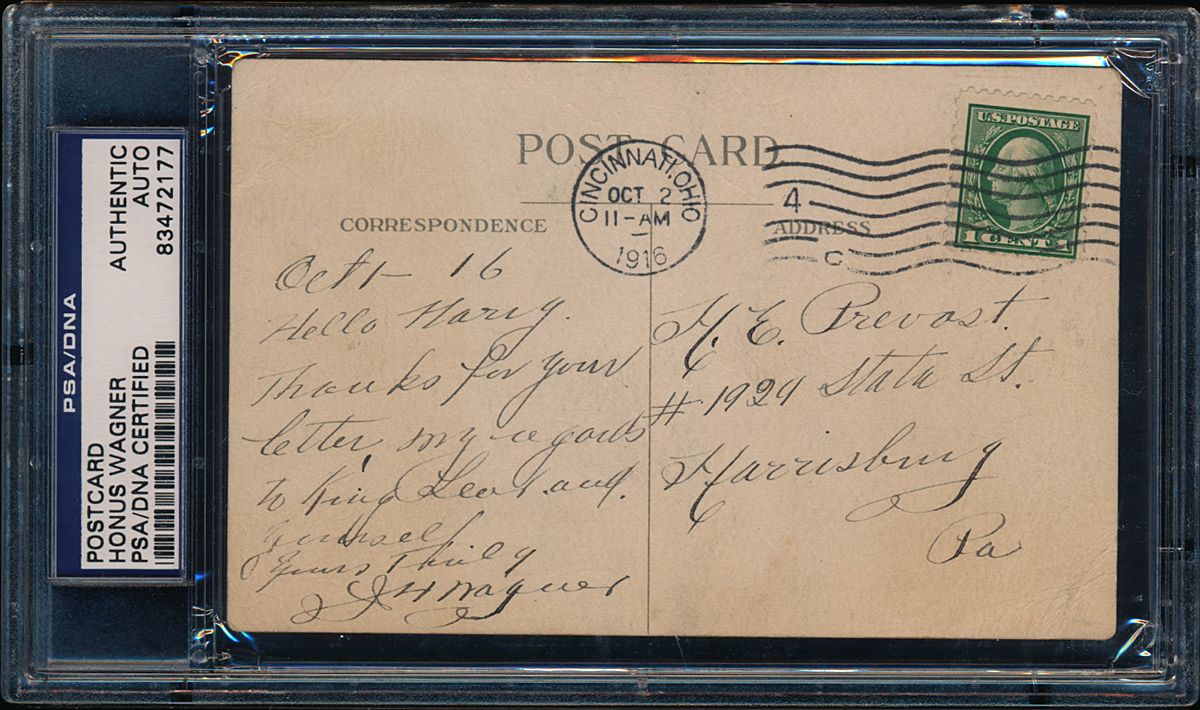 PSA/DNA
POSTCARD
HONUS WAGNER
PSA/DNA CERTIFIED
AUTHENTIC
AUTO
83472177
POST CARD
CORRESPONDENCE
ADDRESS
CINCINNATI, OHIO
OCT 2
11-AM
1916
4
C
U.S. POSTAGE
1 CENT 1
Oct 1 - 16
Hello Harry.
Thanks for your
letter, my regards
to King and
yourself
Yours Truly
J H Wagner
H. E. Prevost.
# 1929 State St.
Harrisburg
Pa